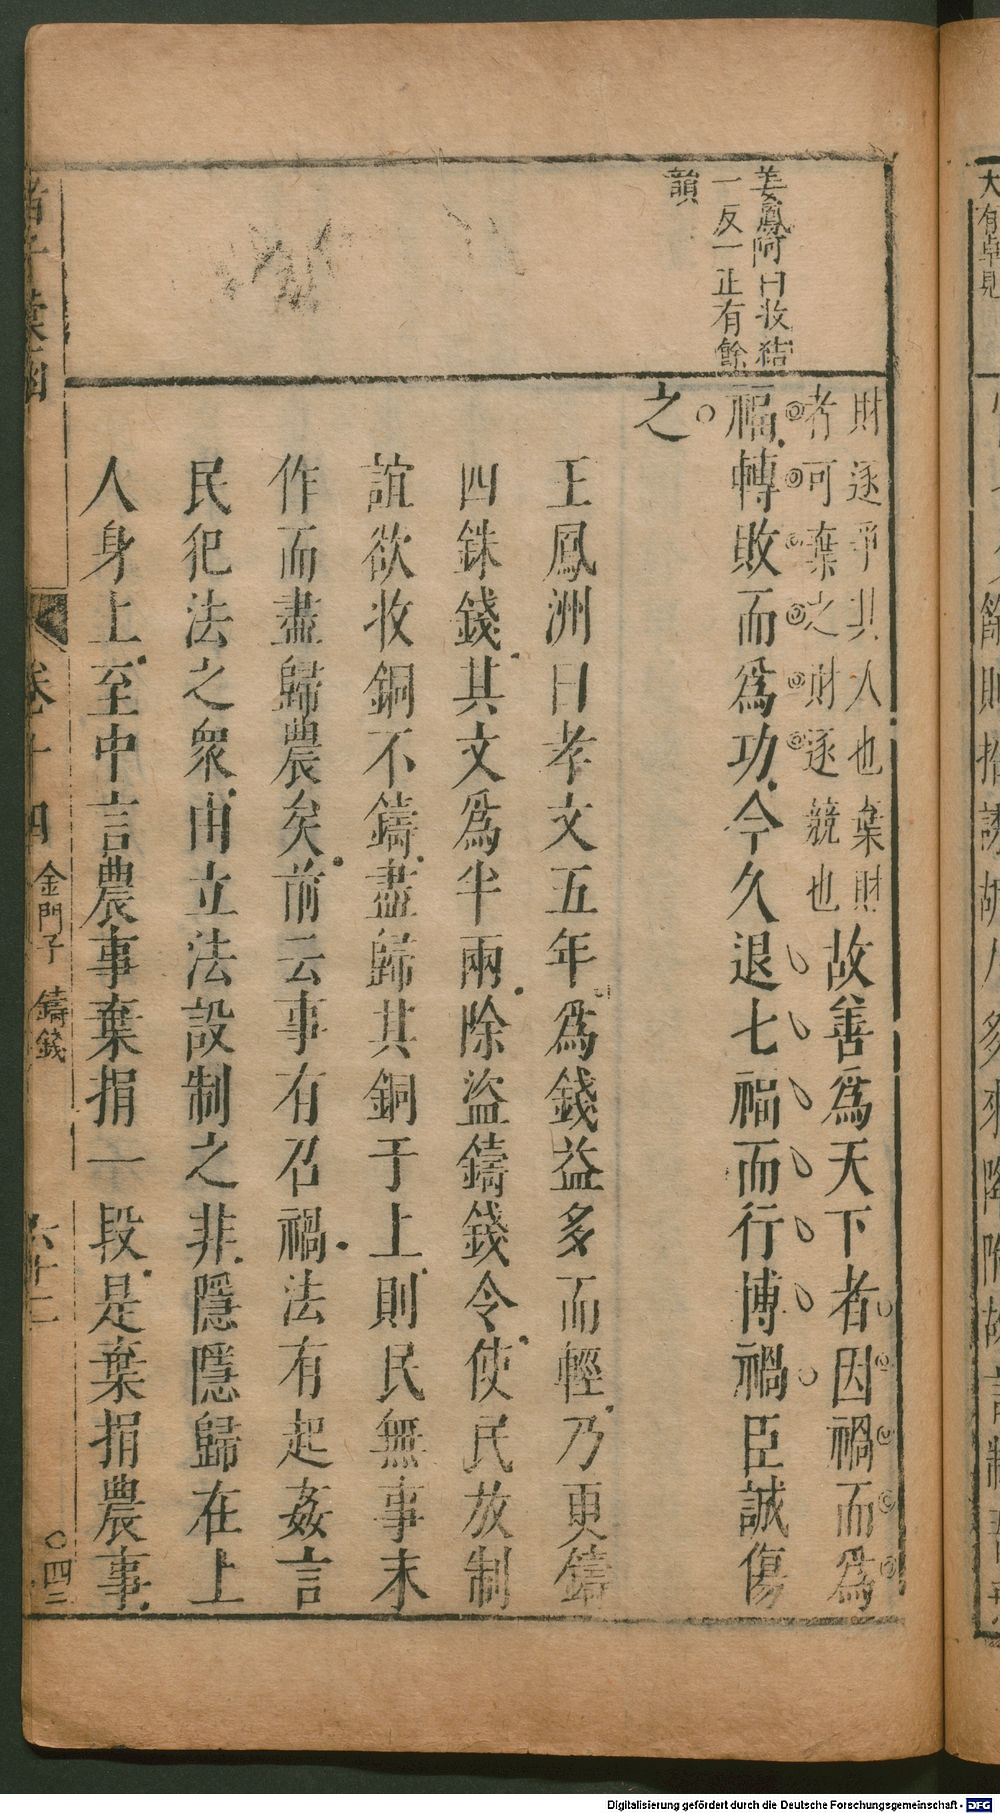 姜鳳阿曰收結
一反一正有餘
韻
財逐爭其人也棄財
者可棄之財逐競也
故善爲天下者因禍而爲
福轉敗而爲功今久退七福而行博禍臣誠傷
之
王鳳洲曰孝文五年爲錢益多而輕乃更鑄
四銖錢其文爲半兩除盜鑄錢令使民放制
誼欲收銅不鑄盡歸其銅于上則民無事末
作而盡歸農矣前云事有召禍法有起姦言
民犯法之衆由立法設制之非隱隱歸在上
人身上至中言農事棄捐一段是棄捐農事
諸子彙函
卷十四
金門子 鑄錢
六十二
四三
Digitalisierung gefördert durch die Deutsche Forschungsgemeinschaft - DFG